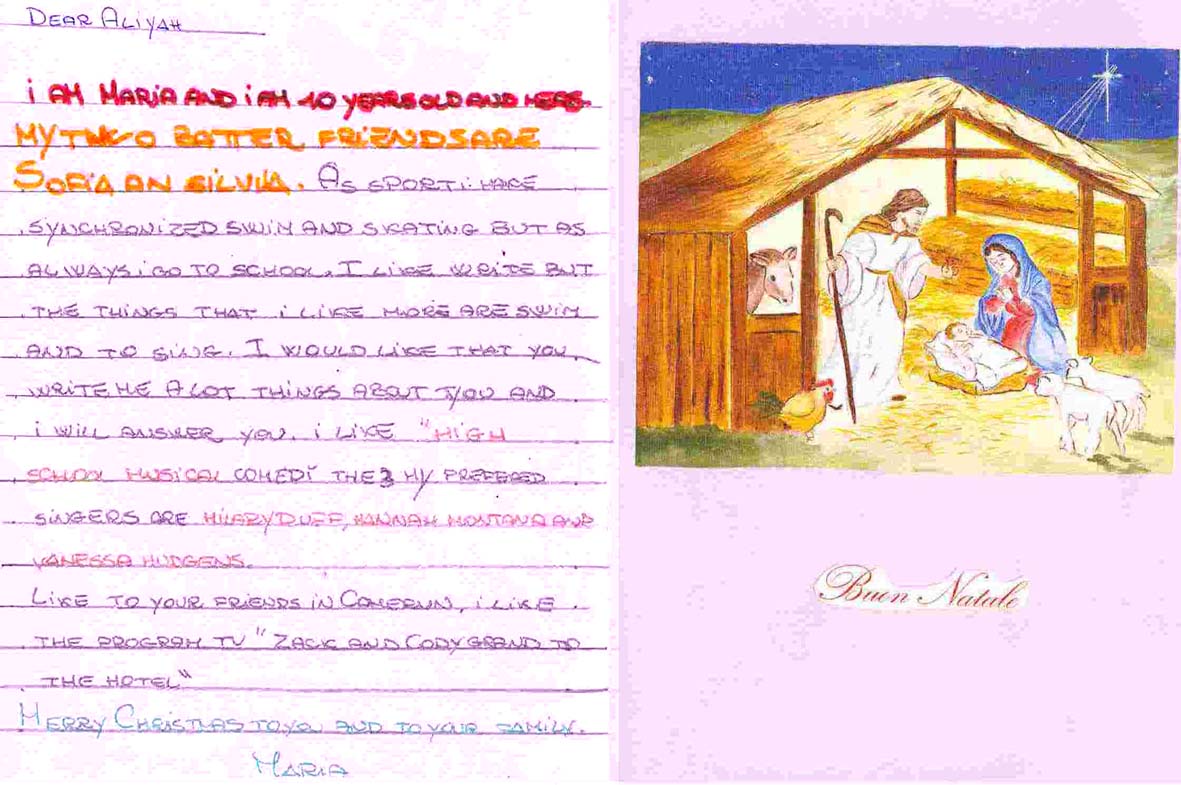 DEAR ALIYAH
i AM MARIA AND i AM 10 YEARS OLD AND HERE
MY TWO BATTER FRIENDS ARE
SOFIA AN SILVIA. AS SPORT i MAKE
SYNCHRONIZED SWIM AND SKATING BUT AS
ALWAYS i GO TO SCHOOL. I LIKE WRITE BUT
THE THINGS THAT i LIKE MORE ARE SWIM
AND TO SING. I WOULD LIKE THAT YOU
WRITE ME A LOT THINGS ABOUT YOU AND
i WILL ANSWER YOU. i LIKE "HIGH
SCHOOL MUSICAL COMEDÌ THE 3 MY PREFERED
SINGERS ARE HILARY DUFF, HANNAH MONTANA AND
VANESSA HUDGENS.
LIKE TO YOUR FRIENDS IN CAMERUN, i LIKE
THE PROGRAM TV "ZACK AND CODY GRAND TO
THE HOTEL"
MERRY CHRISTMAS TO YOU AND TO YOUR FAMILY.
MARIA
Buon Natale